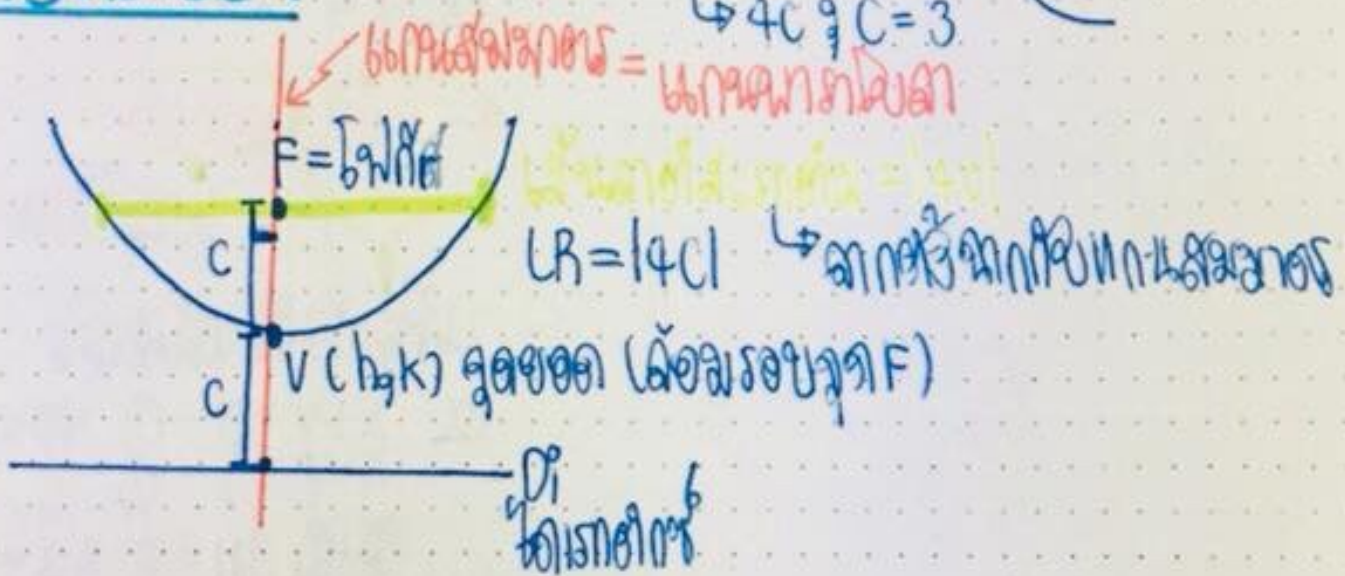 ↳ 4C , C = 3
แกนสมมาตร = แกนพาราโบลา
F = โฟกัส
เส้นลาตัสเรกตัม = |4c|
C
LR = |4C| ↳ ลากตั้งฉากกับแกนสมมาตร
V (h,k) จุดยอด (ล้อมรอบจุด F)
C
Di
ไดเรกตริกซ์